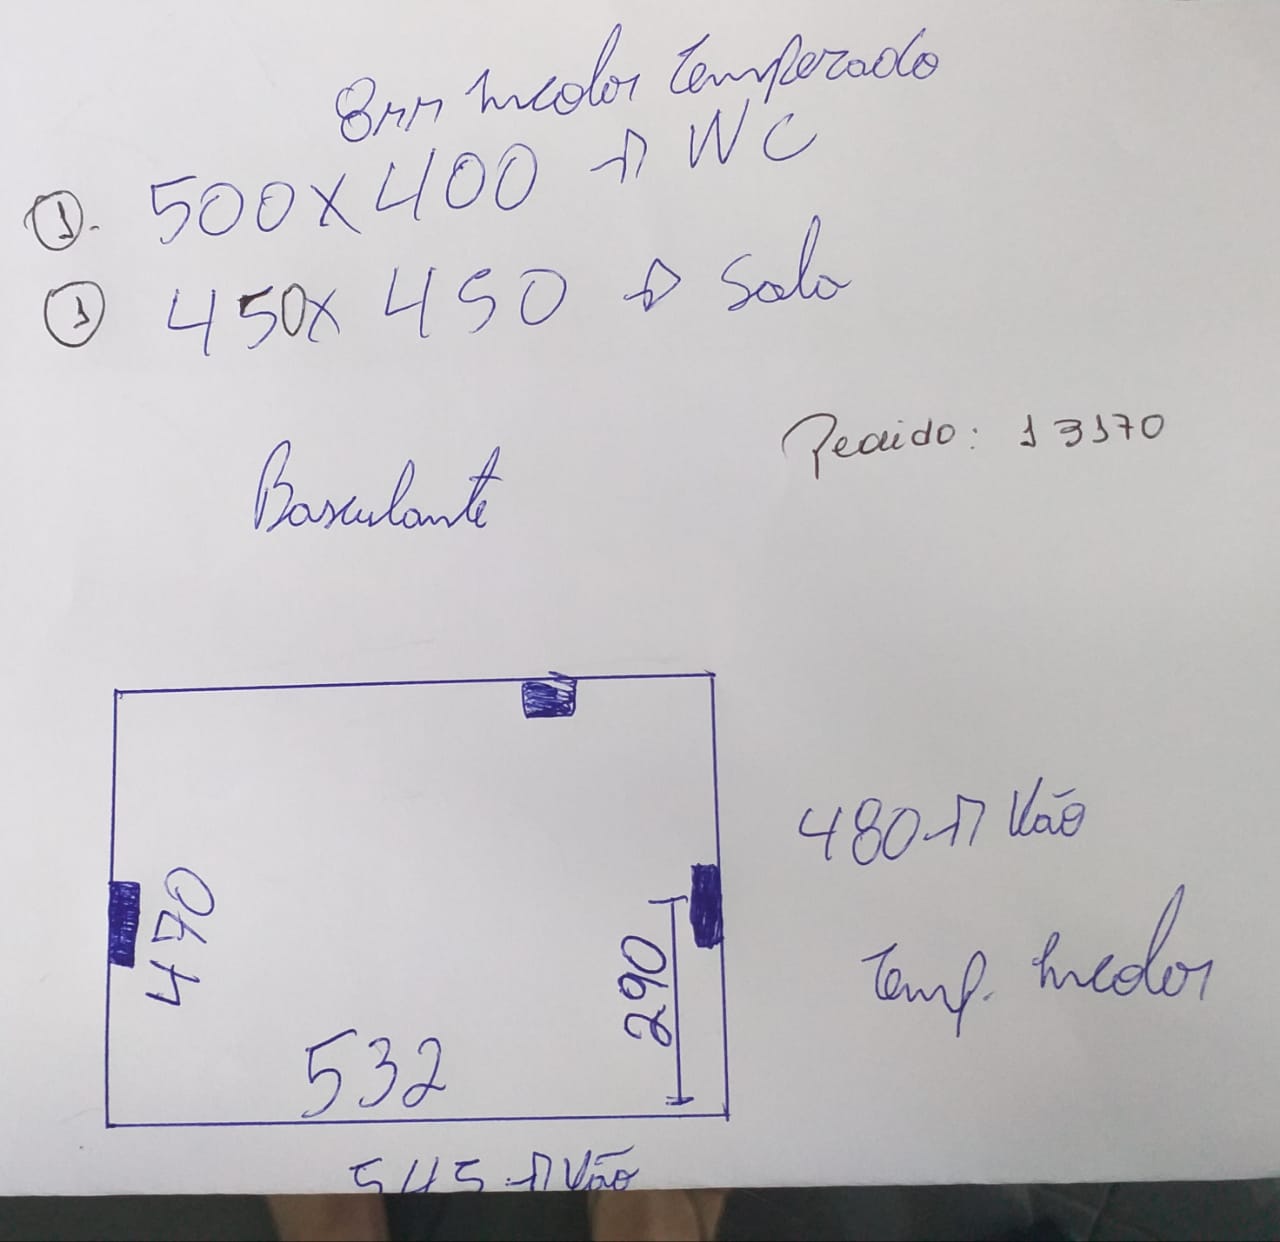 8mm Incolor Temperado
① 500x400 → WC
① 450x 450 → Sala
Pedido: 13170
Basculante
480 → Vão
470
290
Temp. Incolor
532
545 → Vão